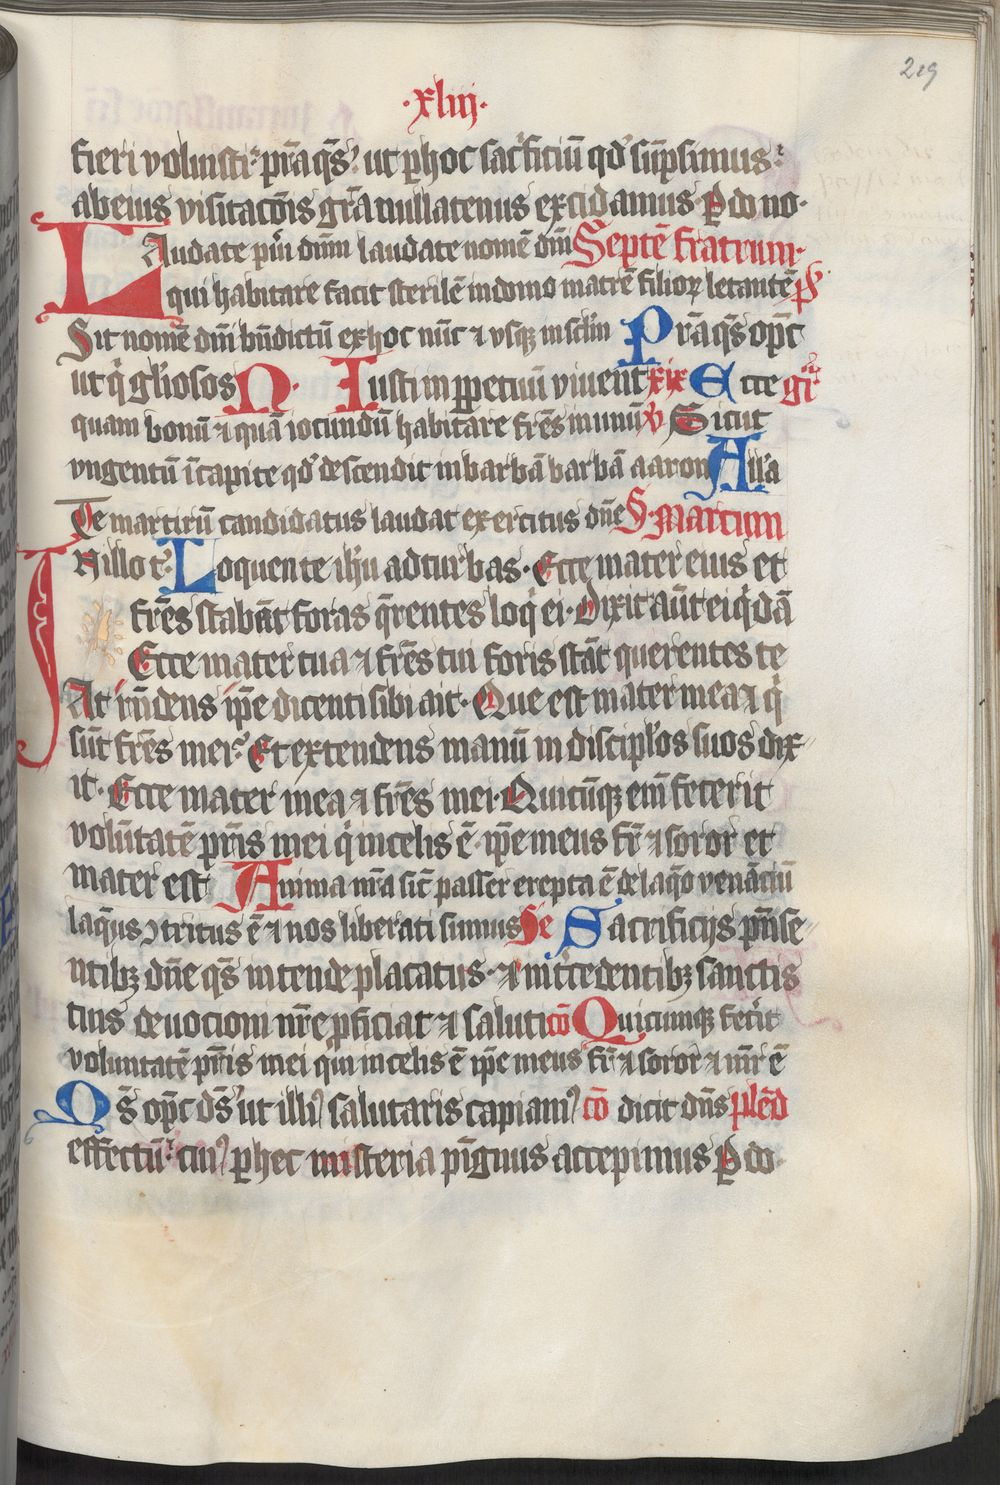 219
·xliij·
fieri voluisti· p̄ra q̄s· ut p hoc sac͛ficiū qd̕ sūpsimus·
ab eius visitac̄ōis gr̄a nullatenus excidamus P do no·
Laudate pu͛i dn̄m laudate nomē dn̄i Septē fratrum·
qui habitare facit sterilē in domo matrē filioꝝ letantē p̄s
Sit nomē dn̄i bn̄dictū ex hoc nūc ⁊ vsqꝫ in sc̄lm Prā q̄s op̄c
ut q͛ gl̕iosos N· Iusti in ppetuū viuent xix Ecce gr̄
quam bonū ⁊ quā iocundū habitare fr̄es in unū v Sicut
vngentū ī capite qd̕ descendit in barbā barbā aaron All̕a
Te martirū candidatus laudat exercitus dn̄e S· Marcum
In illo t̕· Loquente ih̄u ad turbas· Ecce mater eius et
fr̄es stabāt foras q̄rentes loq̕ ei· Dixit aūt ei q̕dā
Ecce mater tua ⁊ fr̄es tui foris stāt querentes te
At rn̄dens ip̄e dicenti sibi ait· Que est mater mea ⁊ q̕
sūt fr̄es mei·̕ Et extendens manū in discipl̕os suos dix
it· Ecce mater mea ⁊ fr̄es mei· Quicūqꝫ em̄ fecerit
volūtatē pr̄is mei q̕ in celis ē· ip̄e meus fr̄ ⁊ soror et
mater est Anima nr̄a sic̄ passer erepta ē de laq̕o venāciū
laq̄us ꝯtritus ē ⁊ nos liberati sumus Se Sacrificijs p̄nse
ntibꝫ dn̄e q̄s intende placatus· ⁊ int͛cedentibꝫ sanctis
tuis deuocioni nr̄e pficiat ⁊ saluti cō Quicunqꝫ fec͛it
voluntatē pr̄is mei qui in celis ē ip̄e meus fr̄ ⁊ soror ⁊ mr̄ ē
Q̄s op̄c ds̄ ut illi⁹ salutaris capiam⁹ cō dicit dn̄s plēd
effectū·̕ cui⁹ p hec misteria pignus accepimus P do·